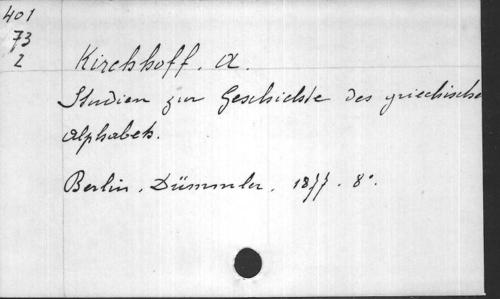 401
73
2
Kirchhoff. A.
Studien zur Geschichte des griechische
Alphabets.
Berlin. Dümmler. 1877. 8°.